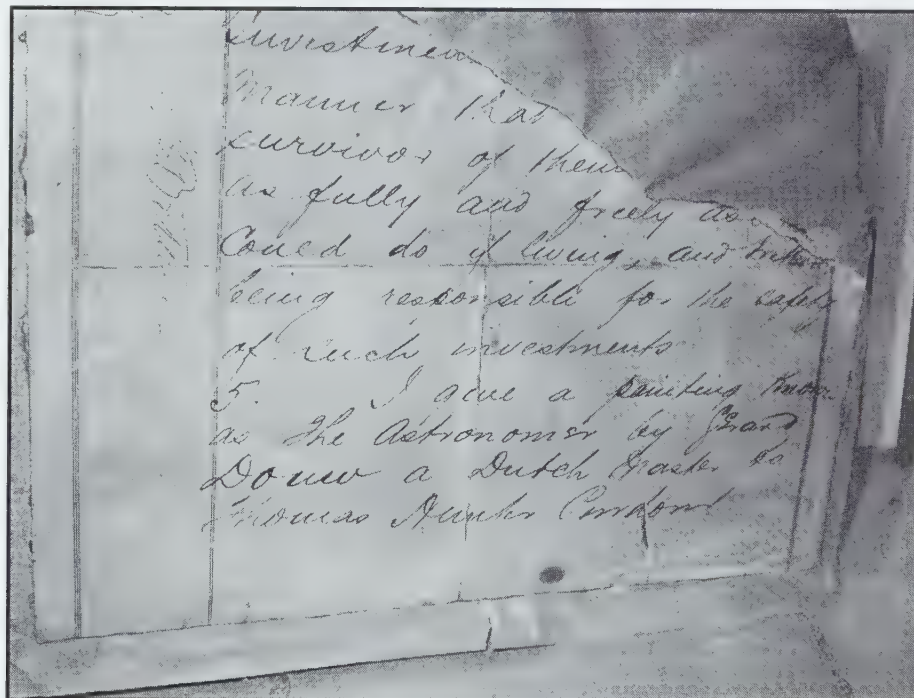 investmen
manner that
survivor of them
as fully and freely as
could do if living, and
being responsible for the safety
of such investments
5. I give a painting know
as the Astronomer by Gerard
Douw a Dutch Master to
Thomas